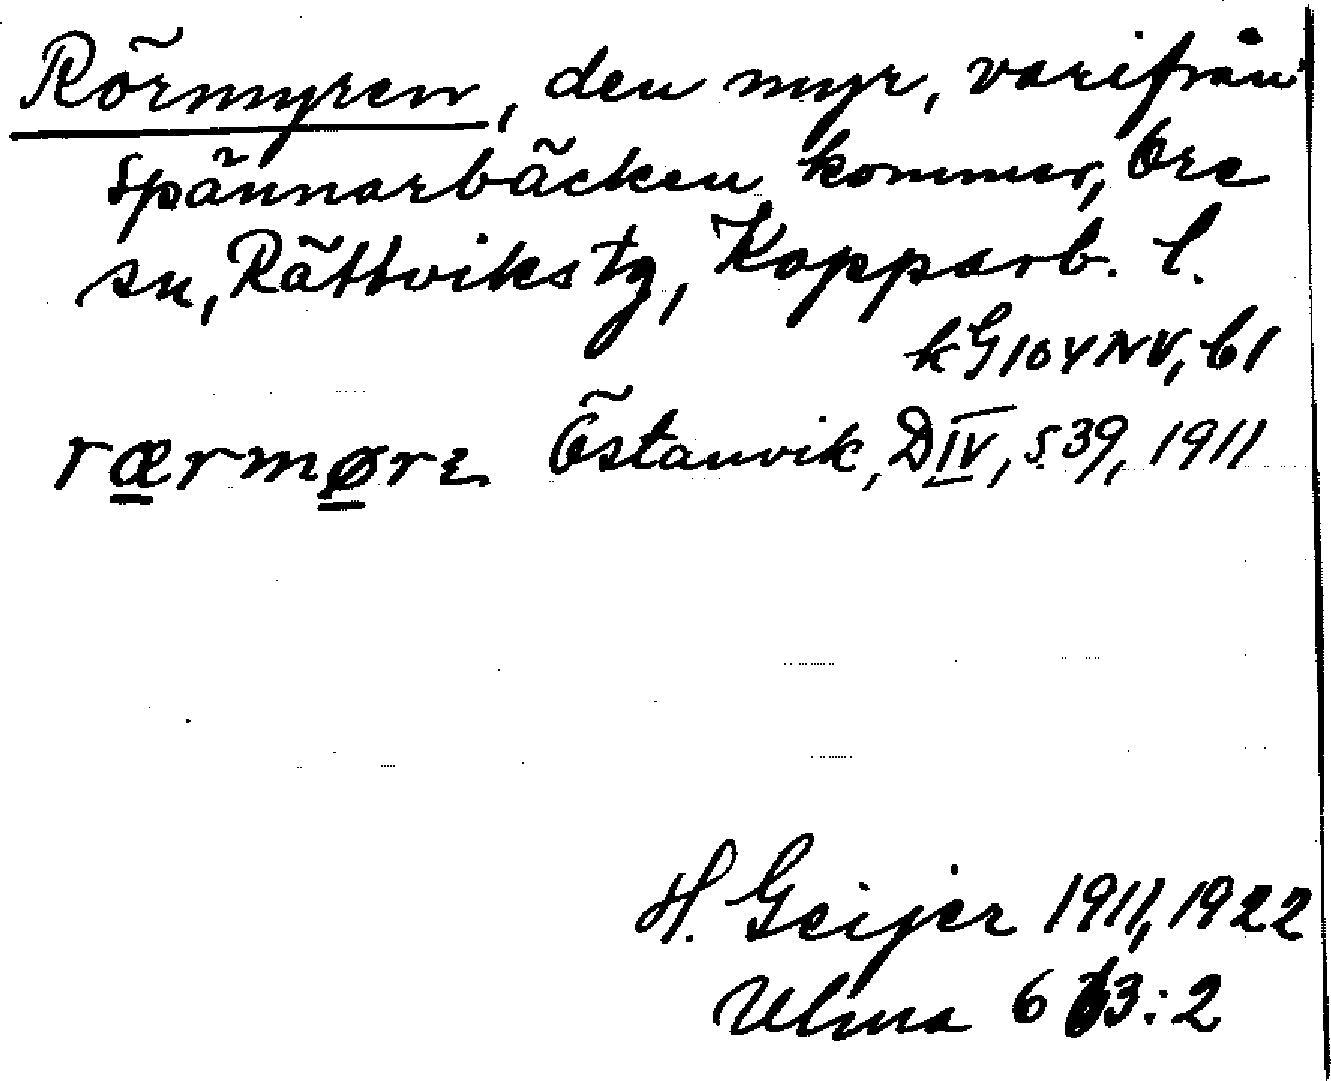 Rörmyren, den myr, varifrån
Spännarbäcken kommer, Ore
sn, Rättviks tg, Kopparb. l.
kG10YNV, b1
rærmøre Östanvik, DIV, s 39, 1911
H. Geijer 1911, 1922
Ulma 6 3:2